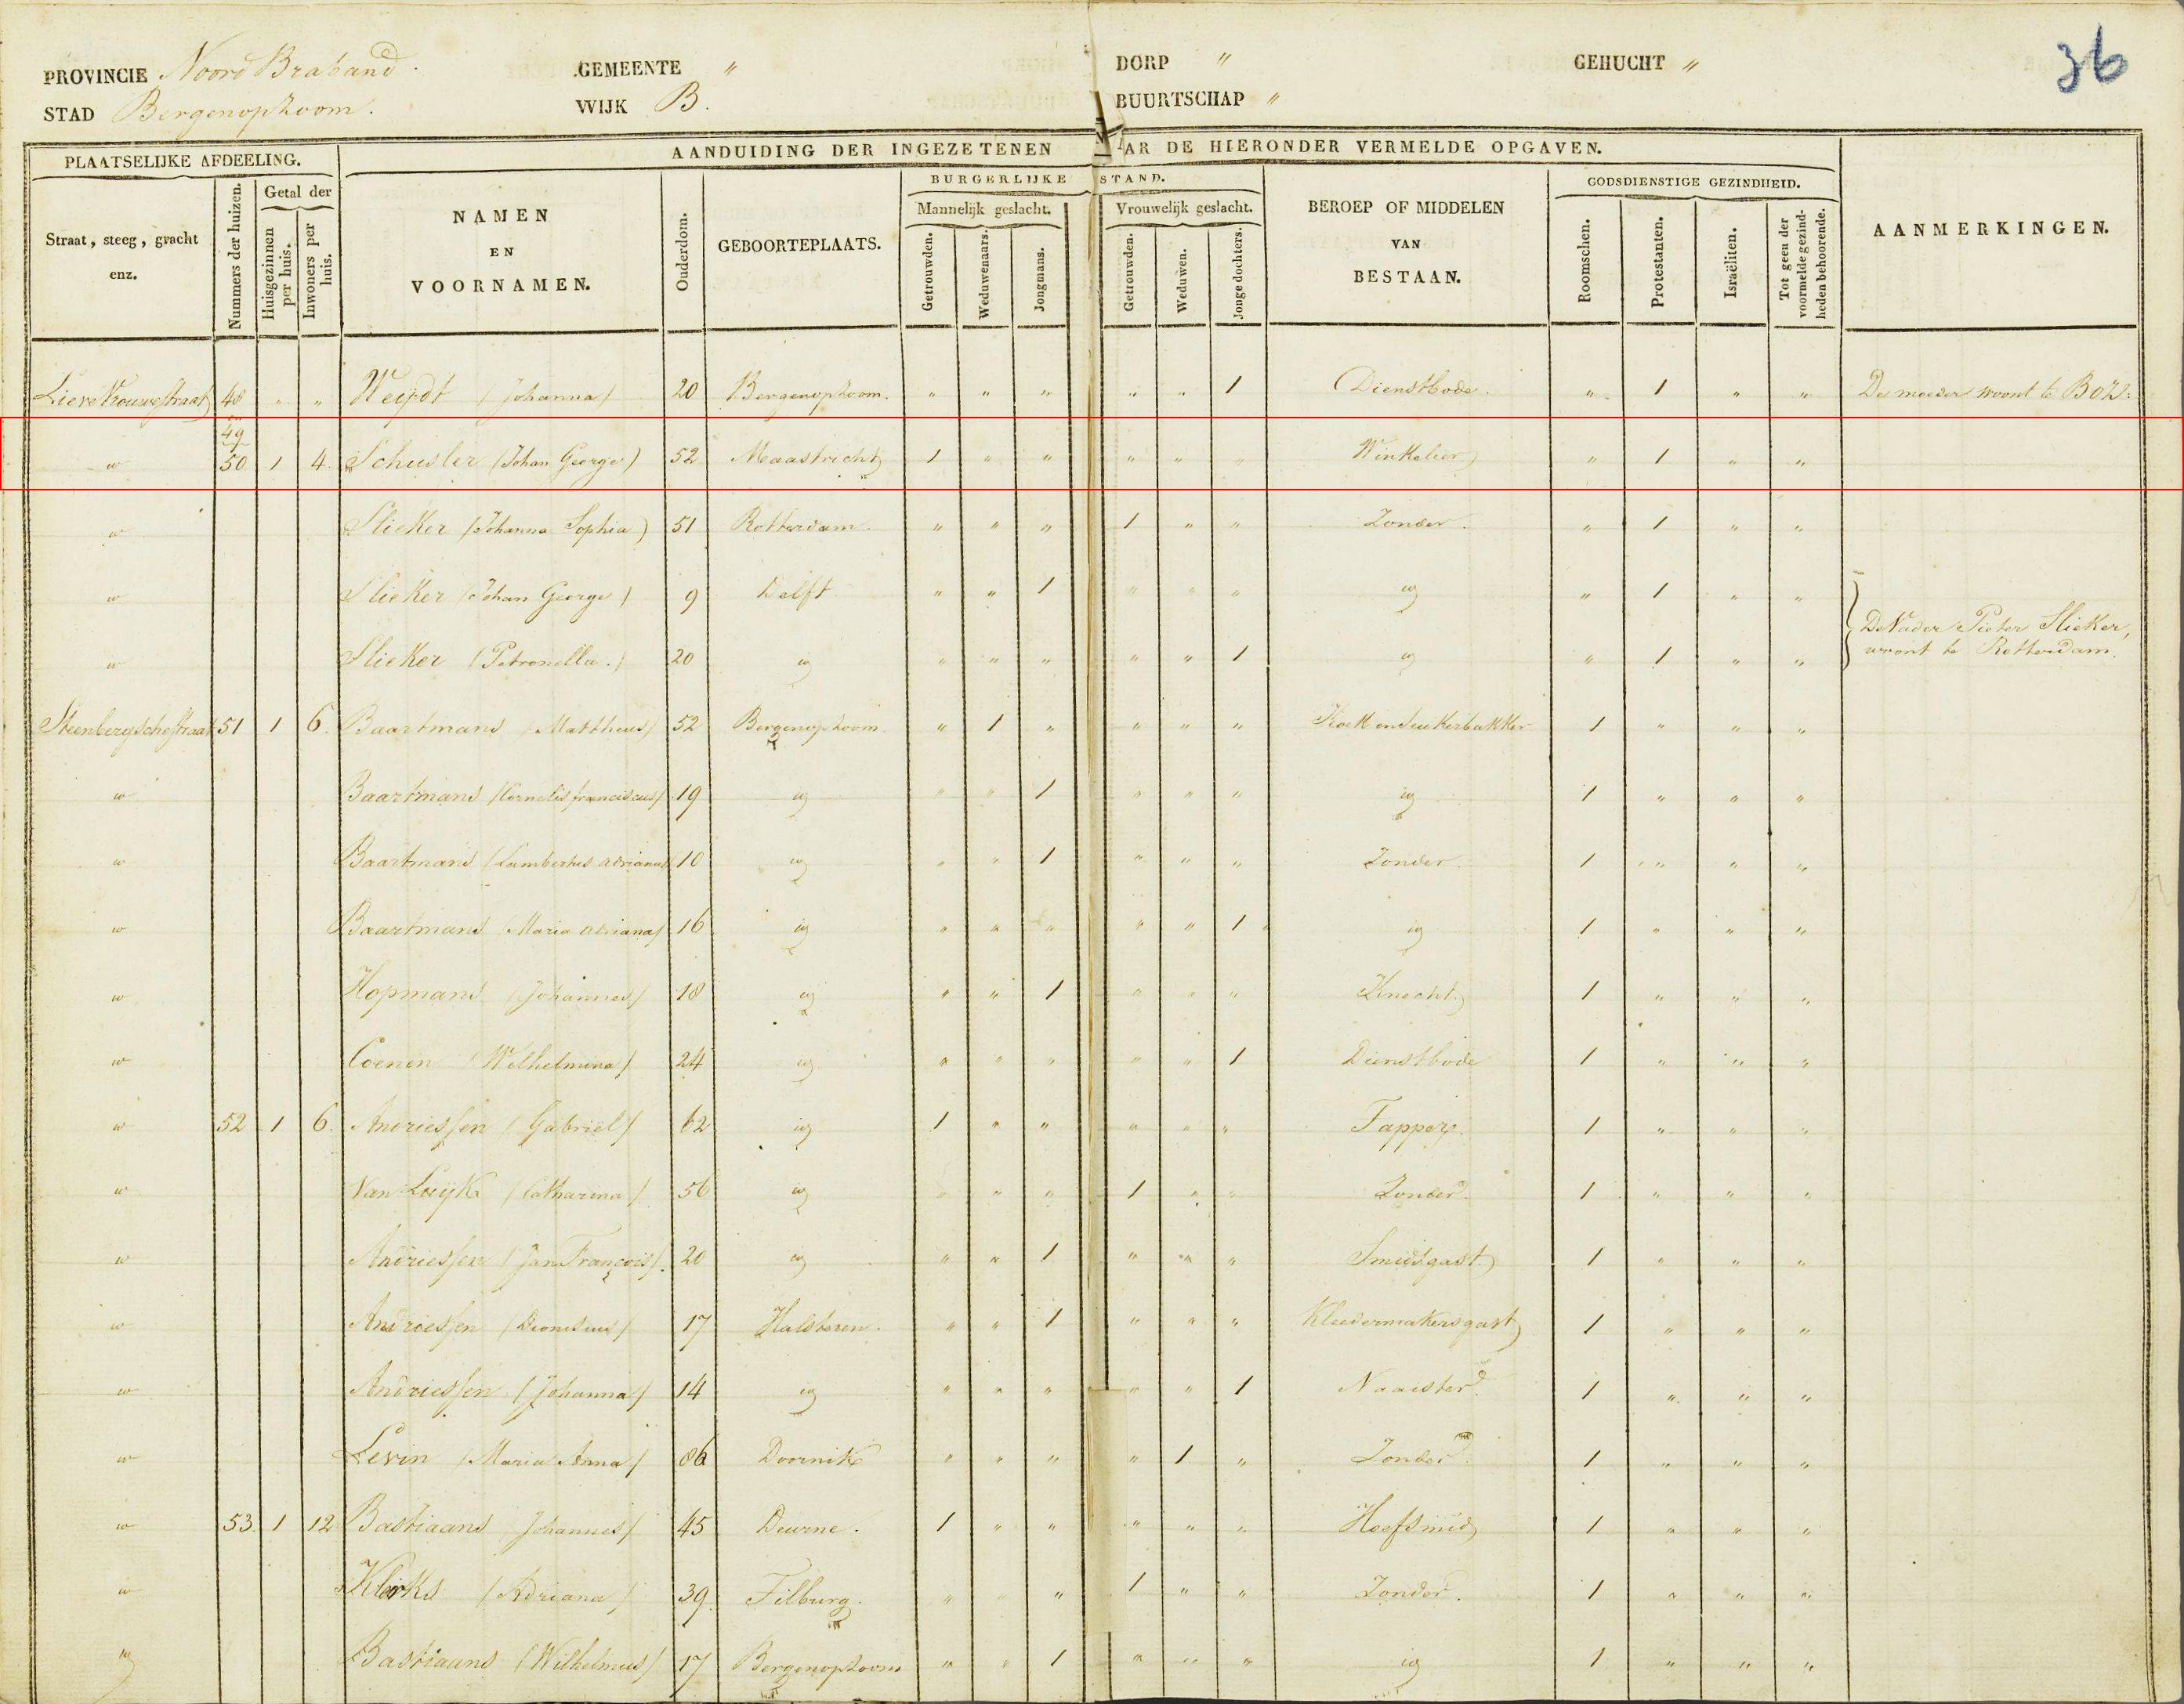 36
PROVINCIE Noord Braband. GEMEENTE " DORP " GEHUCHT "
STAD Bergenopzoom. WIJK B. BUURTSCHAP "
PLAATSELIJKE AFDEELING. AANDUIDING DER INGEZETENEN AR DE HIERONDER VERMELDE OPGAVEN.
Straat, steeg, gracht enz. Nummers der huizen. Getal der Huisgezinnen per huis. Inwoners per huis. NAMEN EN VOORNAMEN. Ouderdom. GEBOORTEPLAATS. BURGERLIJKE STAND. Mannelijk geslacht. Getrouwden. Weduwenaars. Jongmans. Vrouwelijk geslacht. Getrouwden. Weduwen. Jonge dochters. BEROEP OF MIDDELEN VAN BESTAAN. GODSDIENSTIGE GEZINDHEID. Roomschen. Protestanten. Israëliten. Tot geen der voormelde gezindheden behoorende. AANMERKINGEN.
Lieve Vrouwestraat 48 " " Weijdt (Johanna) 20 Bergenopzoom. " " " " " 1 Dienstbode. " 1 " " De moeder woont te BOZ.
" 49 50 1 4 Schusler (Johan George) 52 Maastricht 1 " " " " " Winkelier " 1 " "
" Slieker (Johanna Sophia) 51 Rotterdam " " " 1 " " Zonder. " 1 " "
" Slieker (Johan George) 9 Delft " " 1 " " " ig " 1 " "
" Slieker (Petronella.) 20 ig " " " " " 1 ig " 1 " " De Vader Pieter Slieker, woont te Rotterdam.
Steenbergschestraat 51 1 6. Baartmans (Mattheus) 52 Bergenopzoom. " 1 " " " " Koek en Suikerbakker 1 " " "
" Baartmans (Cornelis franciscus) 19 ig " " 1 " " " ig 1 " " "
" Baartmans (Lambertus adrianus) 10 ig " " 1 " " " Zonder. 1 " " "
" Baartmans (Maria adriana) 16 ig " " " " " 1 ig 1 " " "
" Hopmans (Johannes) 18 ig " " 1 " " " Knecht 1 " " "
" Coenen (Wilhelmina) 24 ig " " " " " 1 Dienstbode 1 " " "
" 52 1 6. Andriessen (Gabriel) 62 ig 1 " " " " " Tapper. 1 " " "
" Van Luijk (Catharina) 56 ig " " " 1 " " Zonder. 1 " " "
" Andriessen (Jan François). 20 ig " " 1 " " " Smidsgast. 1 " " "
" Andriessen (Dionisius) 17 Halsteren. " " 1 " " " Kleedermakersgast 1 " " "
" Andriessen (Johanna) 14 ig " " " " " 1 Naaister. 1 " " "
" Levin (Maria Anna) 86 Doornik " " " " 1 " Zonder. 1 " " "
" 53. 1 12 Bastiaans (Johannes) 45 Deurne. 1 " " " " " Hoefsmid 1 " " "
" Klerks (Adriana) 39. Tilburg. " " " 1 " " Zonder. 1 " " "
" Bastiaans (Wilhelmus) 17 Bergenopzoom " " 1 " " " ig 1 " " "